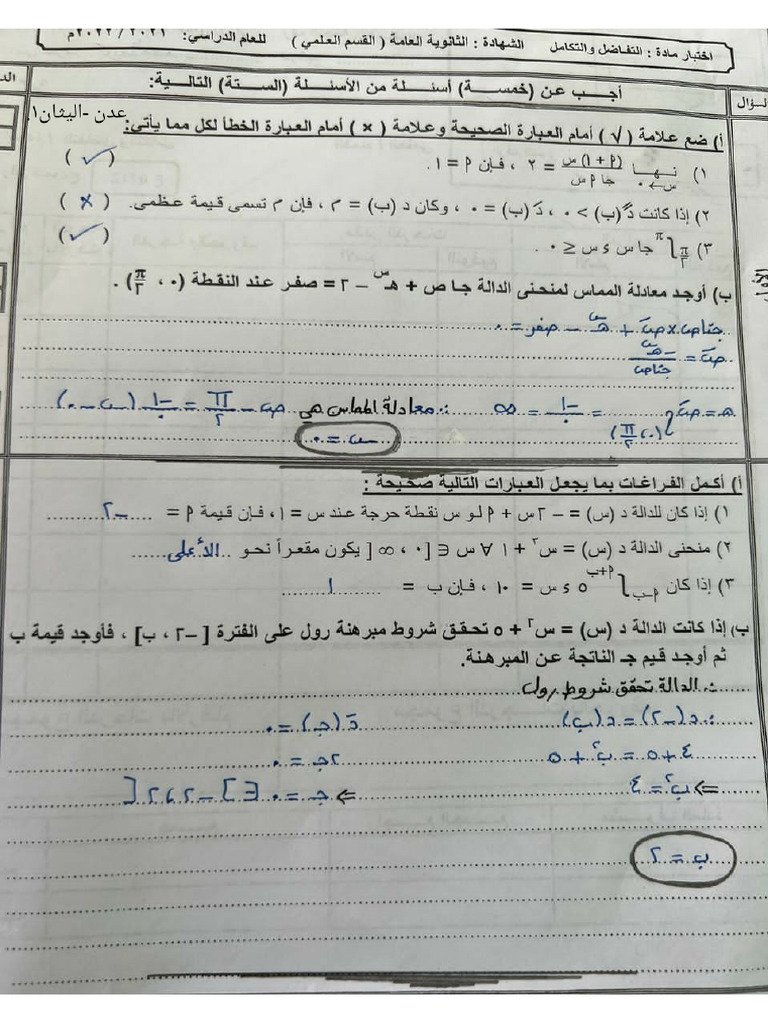 اختبار مادة : التفاضل والتكامل الشهادة : الثانوية العامة ( القسم العلمي ) للعام الدراسي: ٢٠٢١ / ٢٠٢٢م
أجـب عـن (خمسـة) أسـئـلـة من الأسـئـلـة (الستـة) التاليـة:
عدن -اليثان١
أ) ضع علامة ( √ ) أمام العبارة الصحيحة وعلامة ( × ) أمام العبارة الخطأ لكل مما يأتي:
١) نـهـا س←٠ (١ + م) س / جا م س = ٢ ، فإن م = ١ . ( ✓ )
٢) إذا كانت دً(ب) > ٠ ، دَ(ب) = ٠ ، وكان د (ب) = م ، فإن م تسمى قيمة عظمى. ( × )
٣) π/٢ ∫ π جا س ء س ≥ ٠ . ( ✓ )
ب) أوجد معادلة المماس لمنحنى الدالة جا ص + هـ^س – ٢ = صفر عند النقطة (٠ ، π/٢) .
جتاص × صَ + هـ^س – صفر = ٠
صَ = –هـ^س / جتاص
م = صَ] (٠، π/٢) = –١/٠ = ∞ ∴ معادلة المماس هي ص – π/٢ = –١/٠ (س – ٠)
س = ٠
أ) أكمل الفراغات بما يجعل العبارات التالية صحيحة :
١) إذا كان للدالة د (س) = – ٢ س + م لـو س نقطة حرجة عند س = ١ ، فإن قيمة م = ٢
٢) منحنى الدالة د (س) = س^٢ + ١ ∀ س ∈ [٠ ، ∞ [ يكون مقعراً نحو الأعلى
٣) إذا كان م–ب ∫ م+ب ٥ ء س = ١٠ ، فإن ب = ١
ب) إذا كانت الدالة د (س) = س^٢ + ٥ تحقـق شروط مبرهنة رول على الفترة [ –٢ ، ب] ، فأوجد قيمة ب
ثم أوجد قيم جـ الناتجة عن المبرهنة.
∵ الدالة تحقق شروط رول
∴ د(–٢) = د(ب) دَ(جـ) = ٠
٤ + ٥ = ب^٢ + ٥ ٢جـ = ٠
⇒ ب^٢ = ٤ ⇒ جـ = ٠ ∈ ]–٢ ، ٢[
ب = ٢